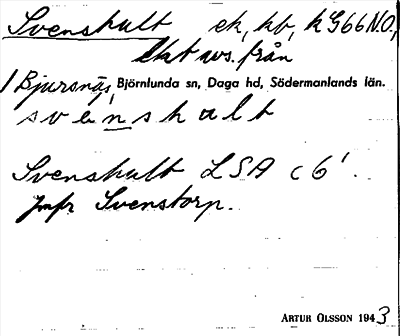 Svenshult ek, kb, kG66N.O.,
Ekt ws. från
1 Bjursnäs, Björnlunda sn, Daga hd, Södermanlands län.
svenshult
Svenshult LSA c 6'.
Jmfr Svenstorp.
ARTUR OLSSON 1943